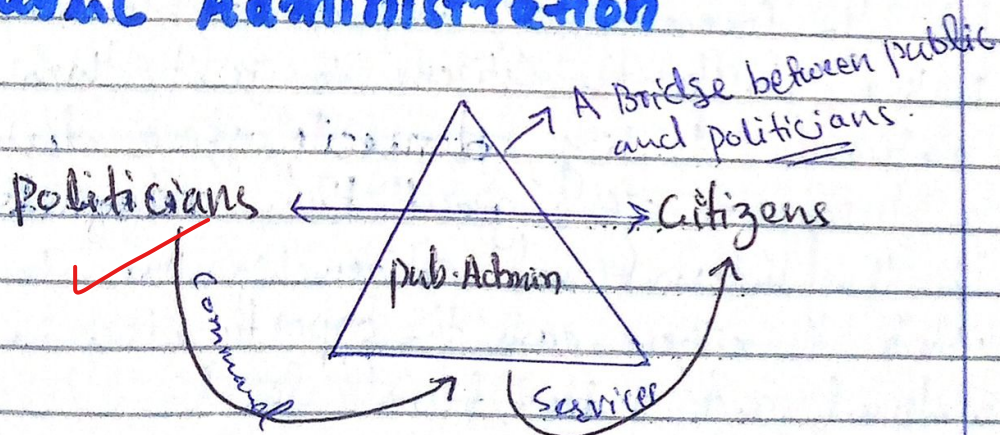 Administration
A Bridge between public
and politicians.
Politicians
Citizens
Pub. Admin
Command
Services